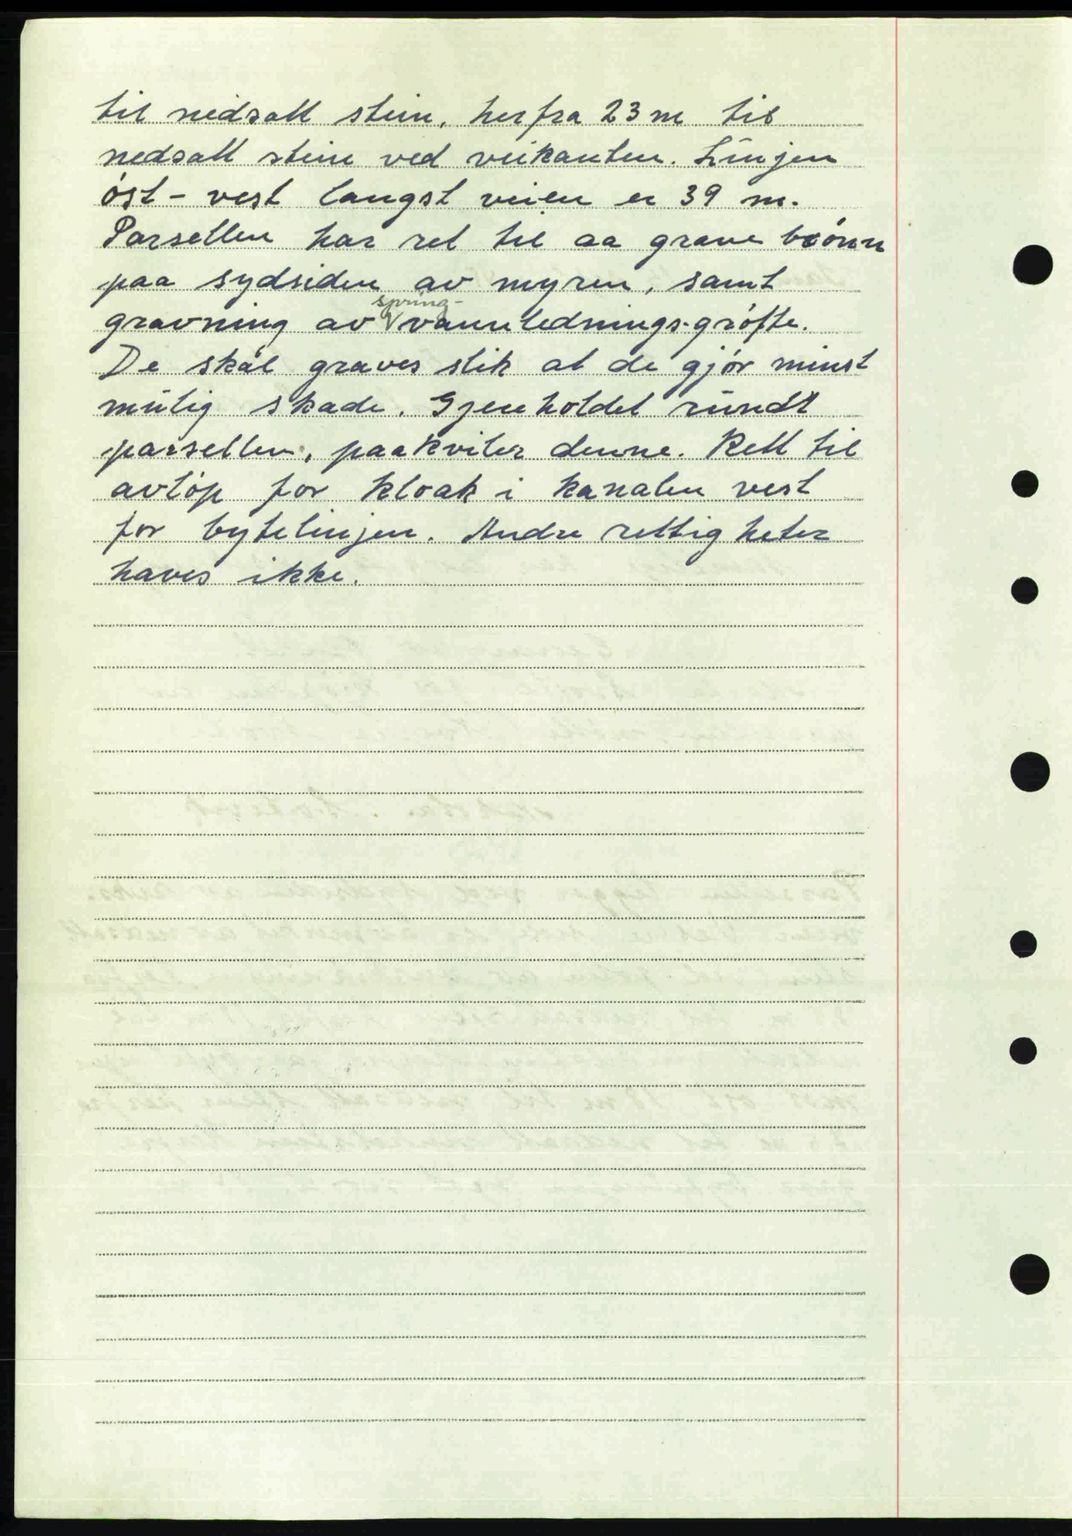 til nedsatt stein, herfra 23 m til
nedsatt stein ved veikanten. Linjen
öst - vest langst veien er 39 m.
Parsellen har ret til aa grave brönn
paa sydsiden av myren, samt
gravning av spring- vannlednings-gröfte.
De skal graves slik at de gjör minst
mulig skade. Gjeeholdet rundt
parsellen, paakviler denne. Rett til
avlöp for kloak i kanalen vest
for bytelinjen. Andre rettigheter
haves ikke.